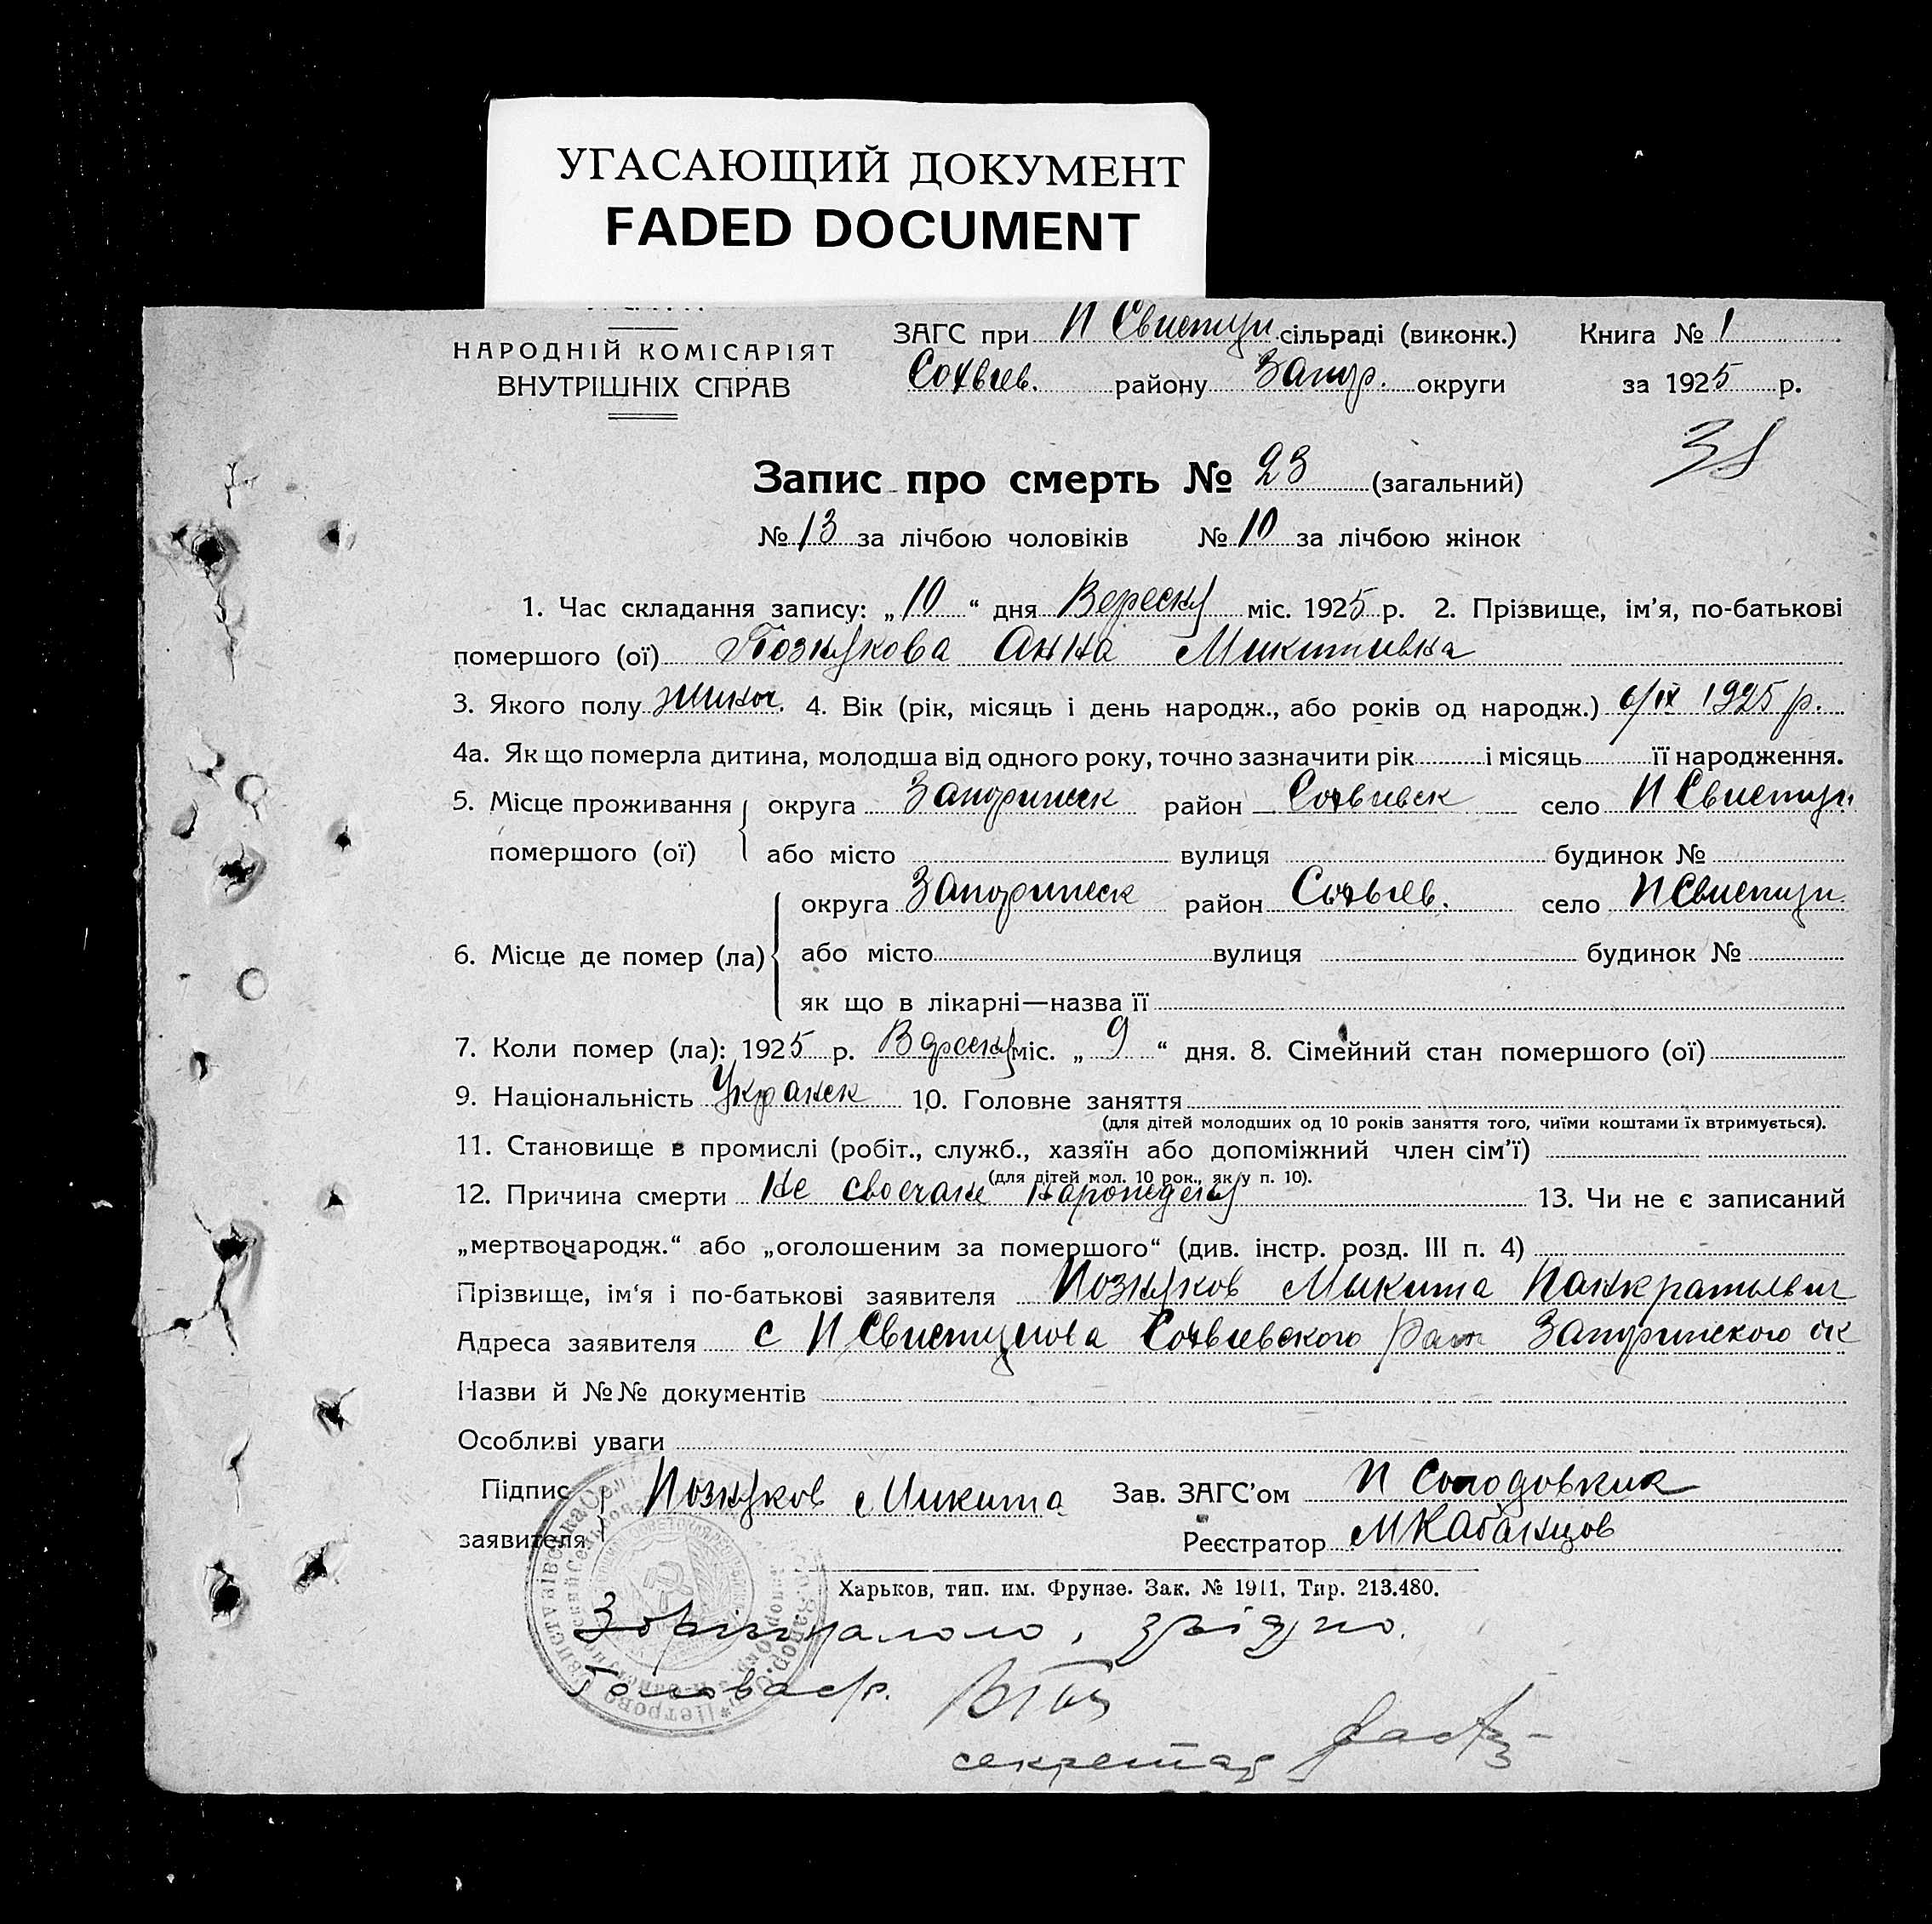 УГАСАЮЩИЙ ДОКУМЕНТ
FADED DOCUMENT
НАРОДНІЙ КОМІСАРІЯТ
ВНУТРІШНІХ СПРАВ
ЗАГС при П Свистун. сільраді (виконк.) Книга № 1
Софіев. району Запор. округи за 1925 р.
38
Запис про смерть № 23 (загальний)
№ 13 за лічбою чоловіків № 10 за лічбою жінок
1. Час складання запису: „10“ дня Вересну міс. 1925 р. 2. Прізвище, ім'я, по-батькові
помершого (ої) Познукова Анна Микитивна
3. Якого полу жиноч. 4. Вік (рік, місяць і день народж., або років од народж.) 6/IX 1925 р.
4а. Як що померла дитина, молодша від одного року, точно зазначити рік і місяць її народження.
5. Місце проживання помершого (ої) округа Запорижск район Софиевск село П Свистун.
або місто вулиця будинок №
6. Місце де помер (ла) округа Запорижск район Софиев. село П Свистун.
або місто вулиця будинок №
як що в лікарні—назва її
7. Коли помер (ла): 1925 р. Вересну міс. „9“ дня. 8. Сімейний стан помершого (ої)
9. Національність Украинск 10. Головне заняття
(для дітей молодших од 10 років заняття того, чиїми коштами їх втримується).
11. Становище в промислі (робіт., служб., хазяїн або допоміжний член сім'ї)
(для дітей мол. 10 рок., як у п. 10).
12. Причина смерти Не своечане народжену 13. Чи не є записаний
„мертвонародж.“ або „оголошеним за помершого“ (див. інстр. розд. III п. 4)
Прізвище, ім'я і по-батькові заявителя Познуков Микита Панкратьевич
Адреса заявителя с П Свистунова Софиевского Рай Запорижского ок
Назви й №№ документів
Особливі уваги
Підпис заявителя Познуков Микита Зав. ЗАГС'ом П Солодовник
Реєстратор М Кабанцов
Харьков, тип. им. Фрунзе. Зак. № 1911, Тир. 213.480.
З оригіналом, згідно.
Голова с/р.
секретар